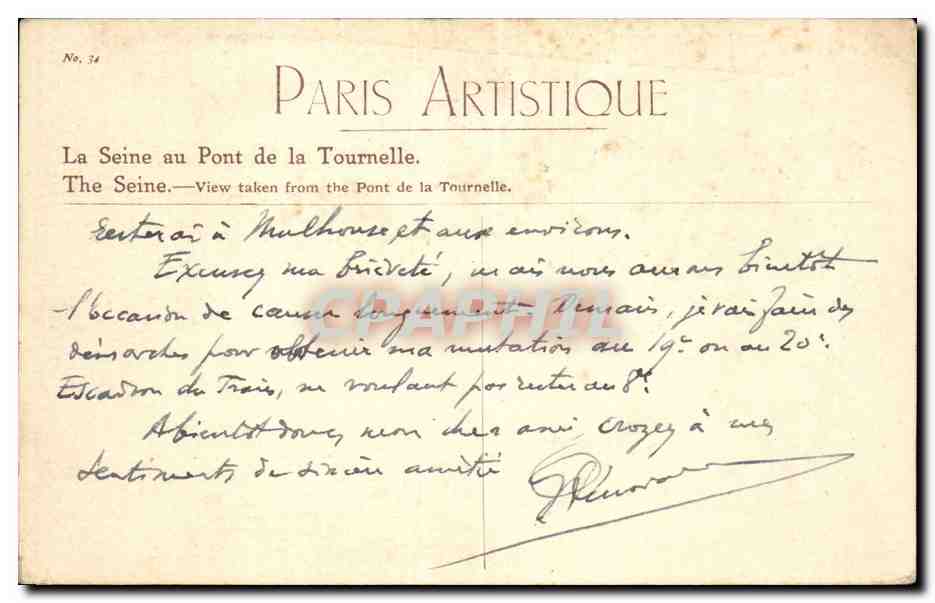 No. 34
PARIS ARTISTIQUE
La Seine au Pont de la Tournelle.
The Seine.—View taken from the Pont de la Tournelle.
resterai à Mulhouse et aux environs.
Excusez ma brièveté, mais nous aurons bientôt
l'occasion de causer longuement. Demain, je vais faire des
démarches pour obtenir ma mutation au 19e ou au 20e
Escadron du Train, ne voulant pas rester au 8e.
A bientôt donc, mon cher ami croyez à mes
sentiments de sincère amitié
CPARHIL